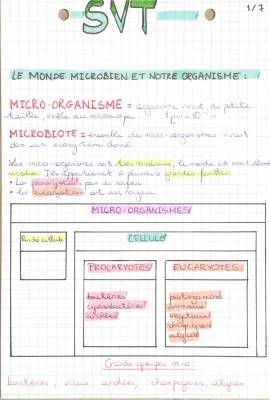 SVT
1/7
LE MONDE MICROBIEN ET NOTRE ORGANISME :
MICRO-ORGANISME = organisme vivant de petite
taille, visible au microscope
MICROBIOTE = ensemble des micro-organismes vivant
dans un ecosystème donné
Les micro-organismes sont très nombreux, le monde est
Ils appartiennent à plusieurs grandes familles
• Les procaryotes : pas de noyau
• Les eucaryotes : ont un noyau
MICRO-ORGANISMES
Pas de cellule
CELLULE
PROCARYOTES
EUCARYOTES
bactéries
cyanobactéries
archées
protozoaires
animaux
végétaux
champignons
algues
Grands groupes m-o :
bactéries, virus, archées, champignons, algues